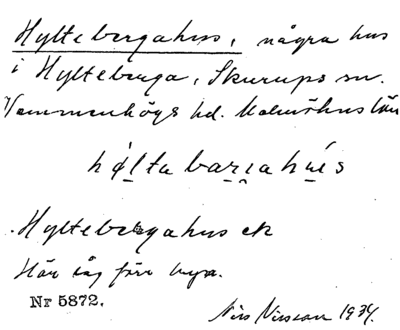 Hyltebergahus, några hus
i Hylteberga, Skurups sn.
Vemmenhögs hd. Malmöhus län
Hyltebergahus ek
Här låg förr
Nr 5872.
Nils Nilsson 1934.